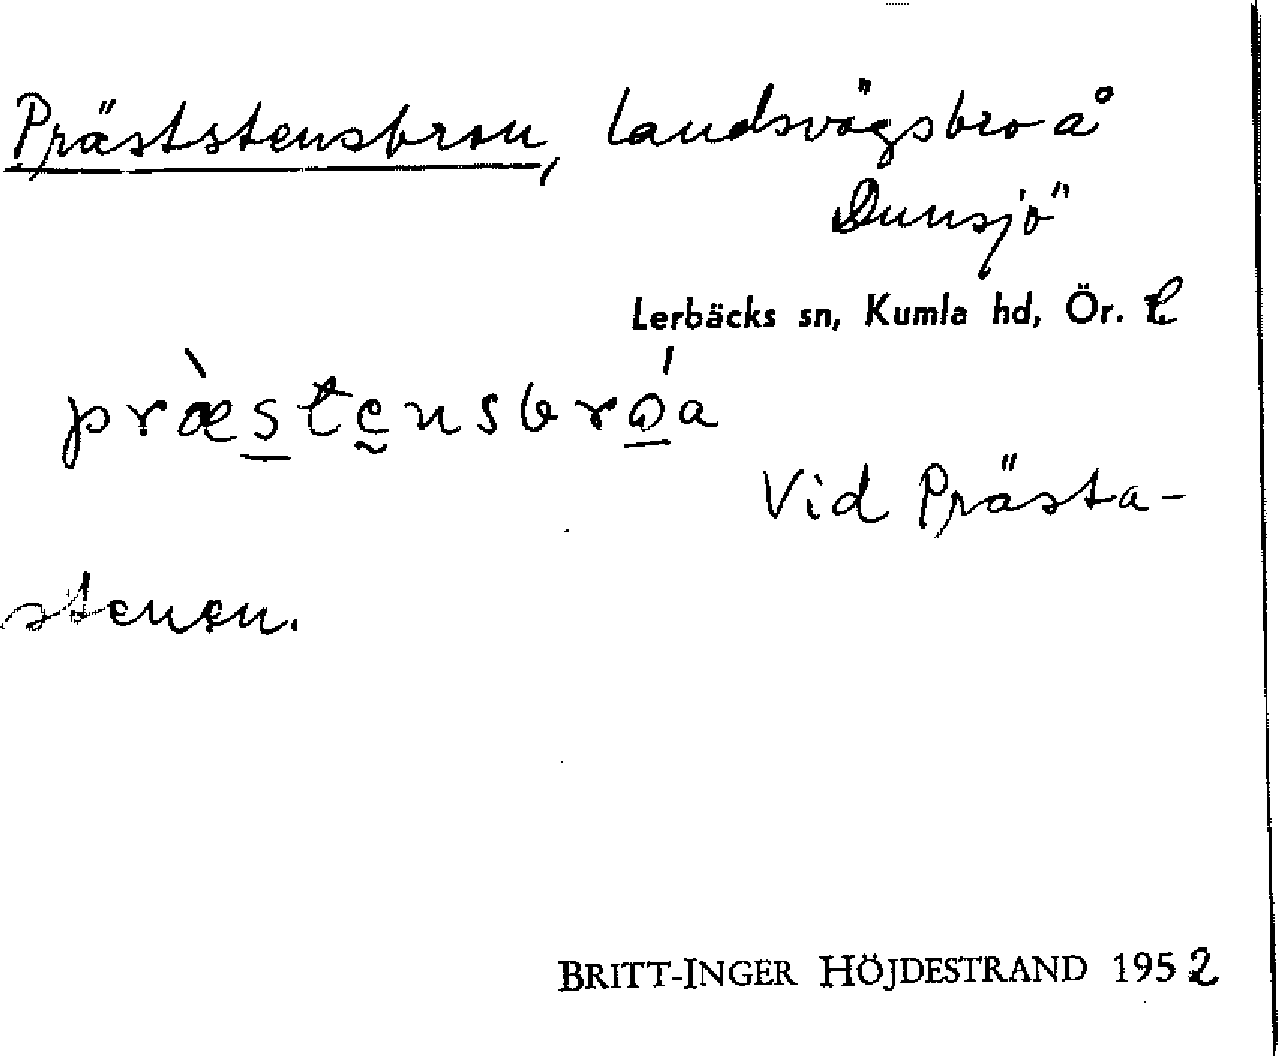 Präststensbron, landsvägsbro å
Dunsjö
Lerbäcks sn, Kumla hd, Ör. l.
præ̀stensbróa
Vid Prästa-
stenen.
BRITT-INGER HÖJDESTRAND 1952